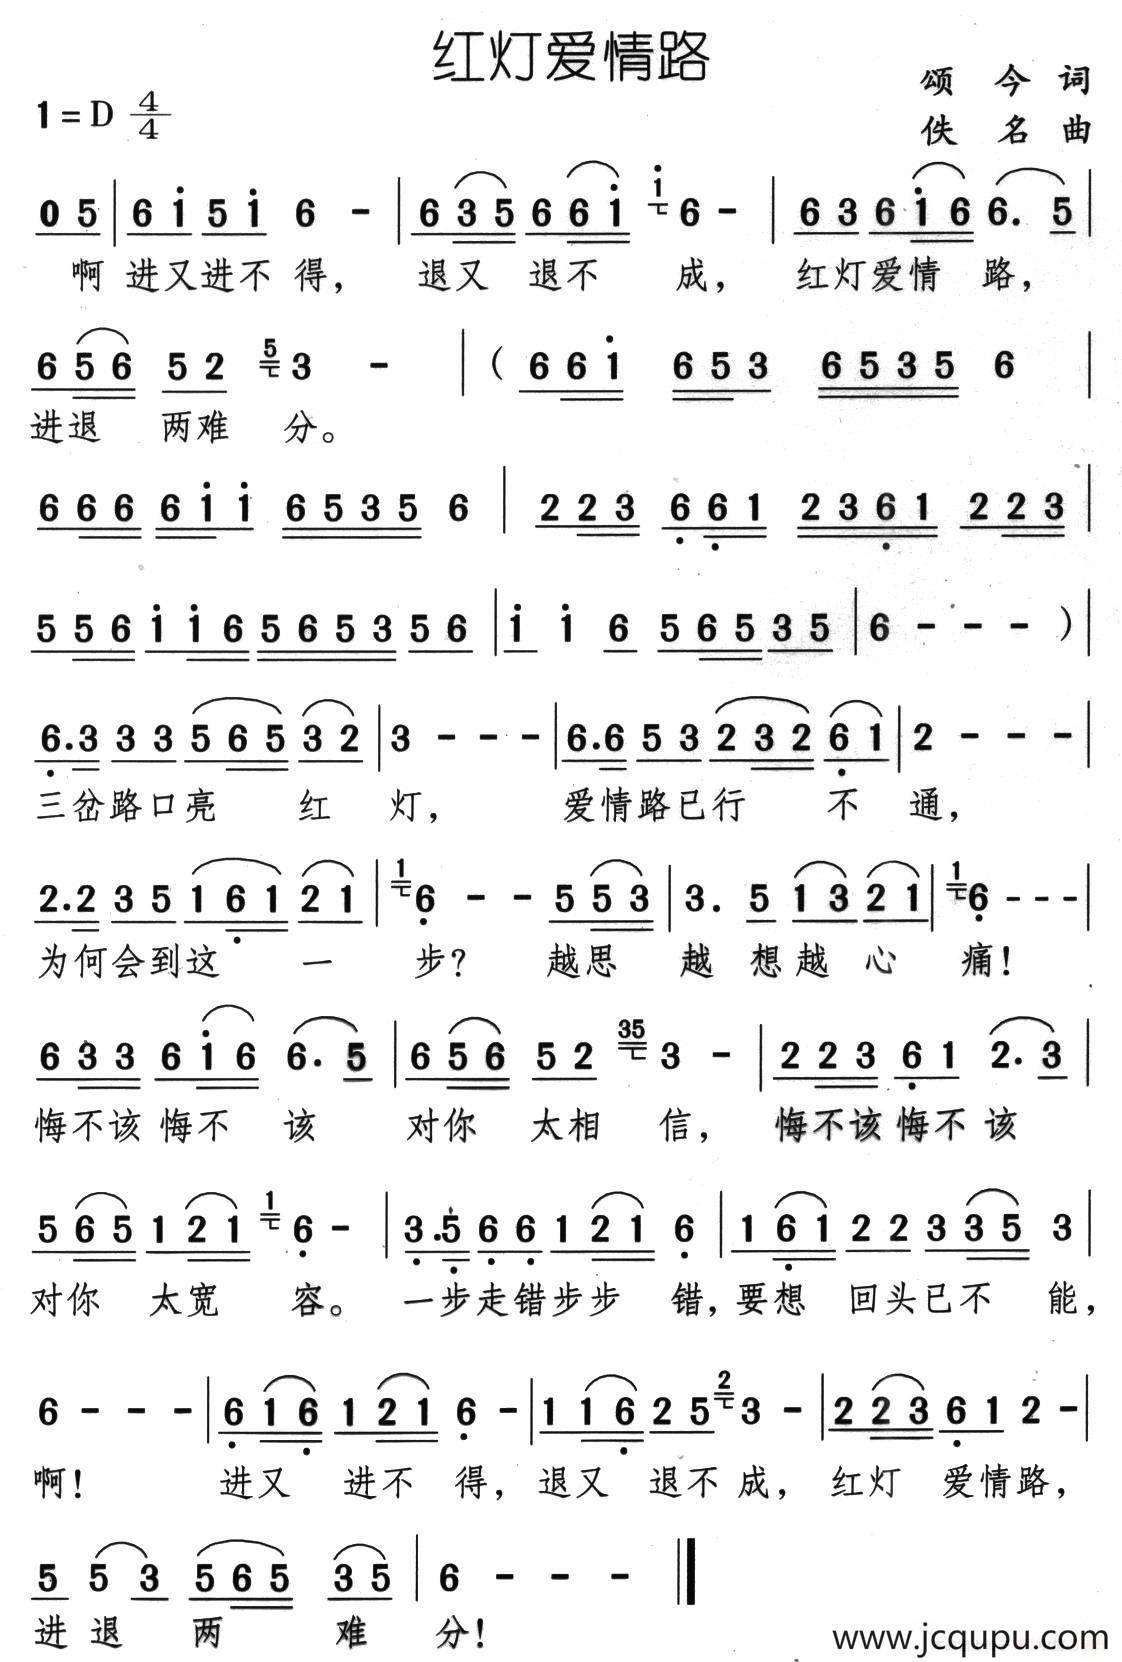 红灯爱情路
1=D 4/4
颂今词
佚名曲
0 5 | 6 i 5 i 6 - | 6 3 5 6 6 i i 6 - | 6 3 6 i 6 6. 5 |
啊 进又进不得， 退又 退不 成， 红灯爱情 路，
6 5 6 5 2 5 3 - | ( 6 6 i 6 5 3 6 5 3 5 6 |
进退 两难 分。
6 6 6 6 i i 6 5 3 5 6 | 2 2 3 6 6 1 2 3 6 1 2 2 3 |
5 5 6 i i 6 5 6 5 3 5 6 | i i 6 5 6 5 3 5 | 6 - - - ) |
6. 3 3 3 5 6 5 3 2 | 3 - - - | 6. 6 5 3 2 3 2 6 1 | 2 - - - |
三岔路口亮 红 灯， 爱情路已行 不 通，
2. 2 3 5 1 6 1 2 1 | 1 6 - - 5 5 3 | 3. 5 1 3 2 1 | 1 6 - - - |
为何会到这 一 步？ 越思 越 想越 心 痛！
6 3 3 6 i 6 6. 5 | 6 5 6 5 2 35 3 - | 2 2 3 6 1 2. 3 |
悔不该悔不 该 对你 太相 信， 悔不该悔不 该
5 6 5 1 2 1 1 6 - | 3. 5 6 6 1 2 1 6 | 1 6 1 2 2 3 3 5 3 |
对你 太宽 容。 一步走错步步 错，要想 回头已不 能，
6 - - - | 6 1 6 1 2 1 6 - | 1 1 6 2 5 2 3 - | 2 2 3 6 1 2 - |
啊！ 进又 进不 得，退又 退不成， 红灯 爱情路，
5 5 3 5 6 5 3 5 | 6 - - - ||
进 退 两 难 分！
www.jcqupu.com